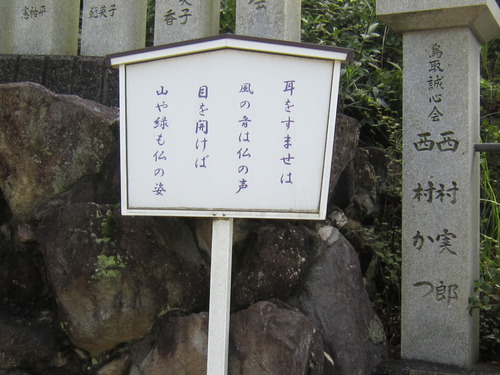 耳をすませは
風の音は仏の声
目を開けば
山や緑も仏の姿
鳥取誠心会
西村実郎
西村かつ